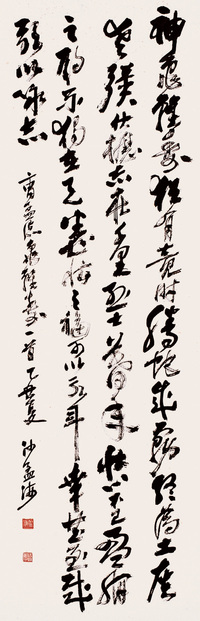 神龜雖壽猶有竟時騰蛇乘霧終為土灰
老驥伏櫪志在千里烈士暮年壯心不已盈縮
之期不獨在天養怡之福可以永年幸甚至哉
歌以詠志 曹孟德龜雖壽一首乙丑夏 沙孟海